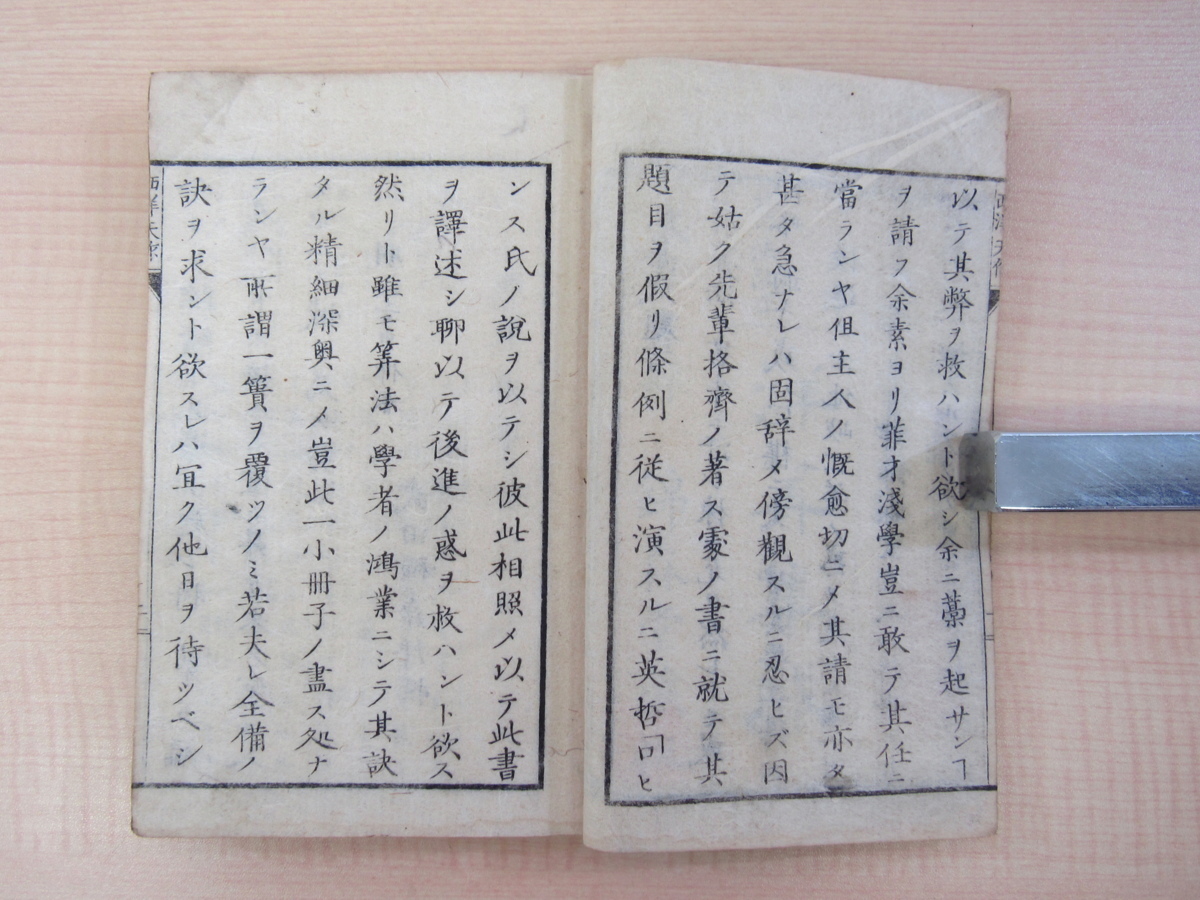 以テ其弊ヲ救ハント欲シ余ニ藁ヲ起サンヿ
ヲ請フ余素ヨリ菲才淺學豈ニ敢テ其任ニ
當ランヤ但主人ノ慨愈切ニメ其請モ亦タ
甚タ急ナレハ固辞メ傍觀スルニ忍ヒズ因
テ姑ク先輩格齊ノ著ス䖏ノ書ニ就テ其
題目ヲ假リ條例ニ従ヒ演スルニ英哲ロヒ
ンス氏ノ說ヲ以テシ彼此相照メ以テ此書
ヲ譯述シ聊以テ後進ノ惑ヲ救ハント欲ス
然リト雖モ筭法ハ學者ノ鴻業ニシテ其訣
タル精細深奥ニメ豈此一小冊子ノ盡ス処ナ
ランヤ所謂一簣ヲ覆ツノミ若夫レ全備ノ
訣ヲ求ント欲スレハ宜ク他日ヲ待ツベシ